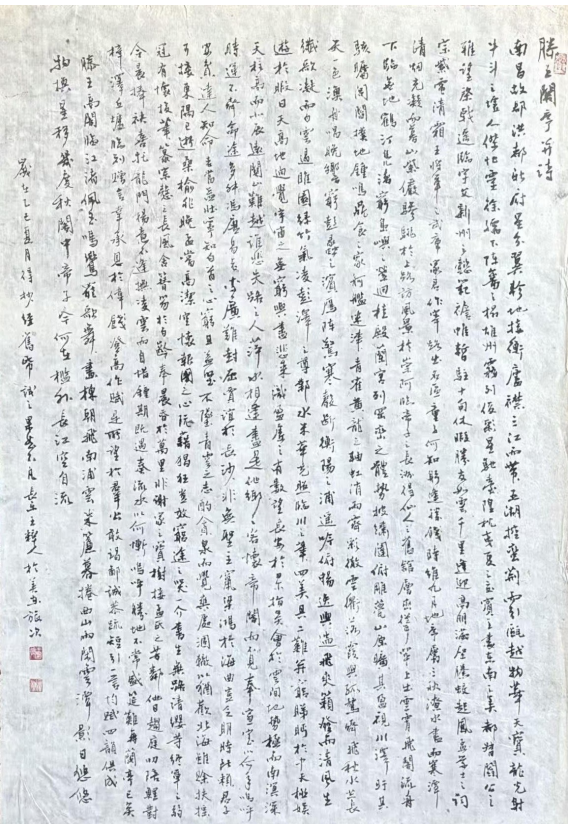 滕王閣序并詩
南昌故郡洪都新府星分翼軫地接衡廬襟三江而帶五湖控蠻荊而引甌越物華天寶龍光射
牛斗之墟人傑地靈徐孺下陳蕃之榻雄州霧列俊彩星馳臺隍枕夷夏之交賓主盡東南之美都督閻公之
雅望棨戟遙臨宇文新州之懿範襜帷暫駐十旬休暇勝友如雲千里逢迎高朋滿座騰蛟起鳳孟學士之詞
宗紫電清霜王將軍之武庫家君作宰路出名區童子何知躬逢勝餞時維九月序屬三秋潦水盡而寒潭
清烟光凝而暮山紫儼驂騑於上路訪風景於崇阿臨帝子之長洲得仙人之舊館層巒聳翠上出重霄飛閣流丹
下臨無地鶴汀鳧渚窮島嶼之縈迴桂殿蘭宮列岡巒之體勢披繡闥俯雕甍山原曠其盈視川澤紆其
駭矚閭閻撲地鐘鳴鼎食之家舸艦迷津青雀黃龍之舳虹消雨霽彩徹雲衢落霞與孤鶩齊飛秋水共長
天一色漁舟唱晚響窮彭蠡之濱雁陣驚寒聲斷衡陽之浦遙吟俯暢逸興遄飛爽籟發而清風生
纖歌凝而白雲遏睢園綠竹氣凌彭澤之樽鄴水朱華光照臨川之筆四美具二難并窮睇眄於中天極娛
遊於暇日天高地迥覺宇宙之無窮興盡悲來識盈虛之有數望長安於日下指吳會於雲間地勢極而南溟深
天柱高而北辰遠關山難越誰悲失路之人萍水相逢盡是他鄉之客懷帝閽而不見奉宣室以何年嗚呼
時運不齊命途多舛馮唐易老李廣難封屈賈誼於長沙非無聖主竄梁鴻於海曲豈乏明時所賴君子
安貧達人知命老當益壯寧知白首之心窮且益堅不墜青雲之志酌貪泉而覺爽處涸轍以猶歡北海雖賒扶搖
可接東隅已逝桑榆非晚孟嘗高潔空懷報國之心阮籍猖狂豈效窮途之哭一介書生無路請纓等終軍之弱
冠有懷投筆慕宗愨之長風舍簪笏於百齡奉晨昏於萬里非謝家之寶樹接孟氏之芳鄰他日趨庭叨陪鯉對
今晨捧袂喜托龍門楊意不逢撫凌雲而自惜鍾期既遇奏流水以何慚嗚呼勝地不常盛筵難再蘭亭已矣
梓澤丘墟臨別贈言幸承恩於偉餞登高作賦是所望於群公敢竭鄙誠恭疏短引一言均賦四韻俱成
滕王高閣臨江渚佩玉鳴鸞罷歌舞畫棟朝飛南浦雲朱簾暮捲西山雨閑雲潭影日悠悠
物換星移幾度秋閣中帝子今何在檻外長江空自流
歲在乙巳夏月